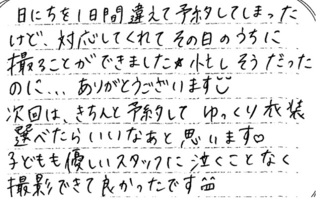 日にちを1日間違えて予約してしまった
けど、対応してくれてその日のうちに
撮ることができました★忙しそうだった
のに…ありがとうございます
次回は、きちんと予約して ゆっくり衣装
選べたらいいなあと思います♡
子どもも優しいスタッフに泣くことなく
撮影できて良かったです